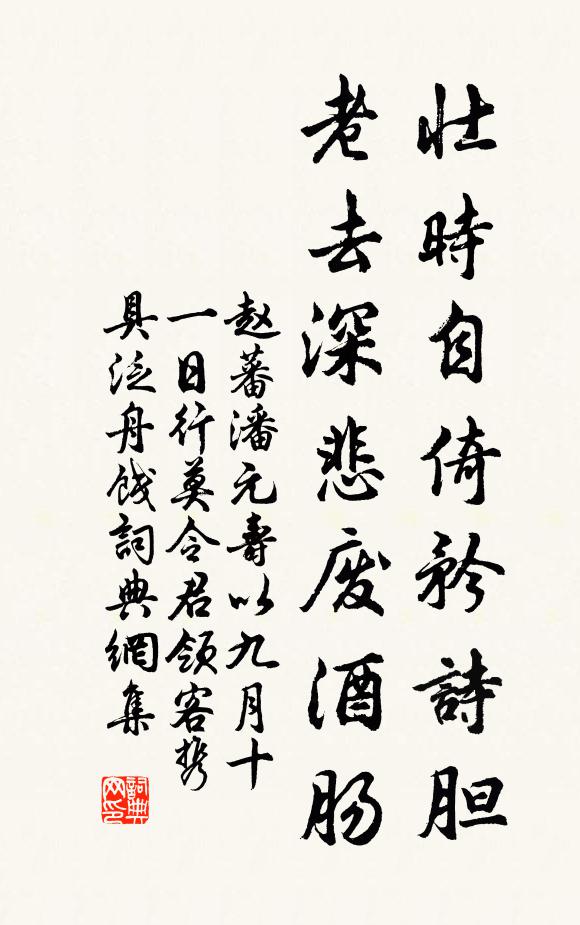 壮時自倚矜詩胆
老去深悲废酒肠
赵蕃潘元壽以九月十
一日行莫令君領客携
具泛舟餞詞典網集
詞典网印